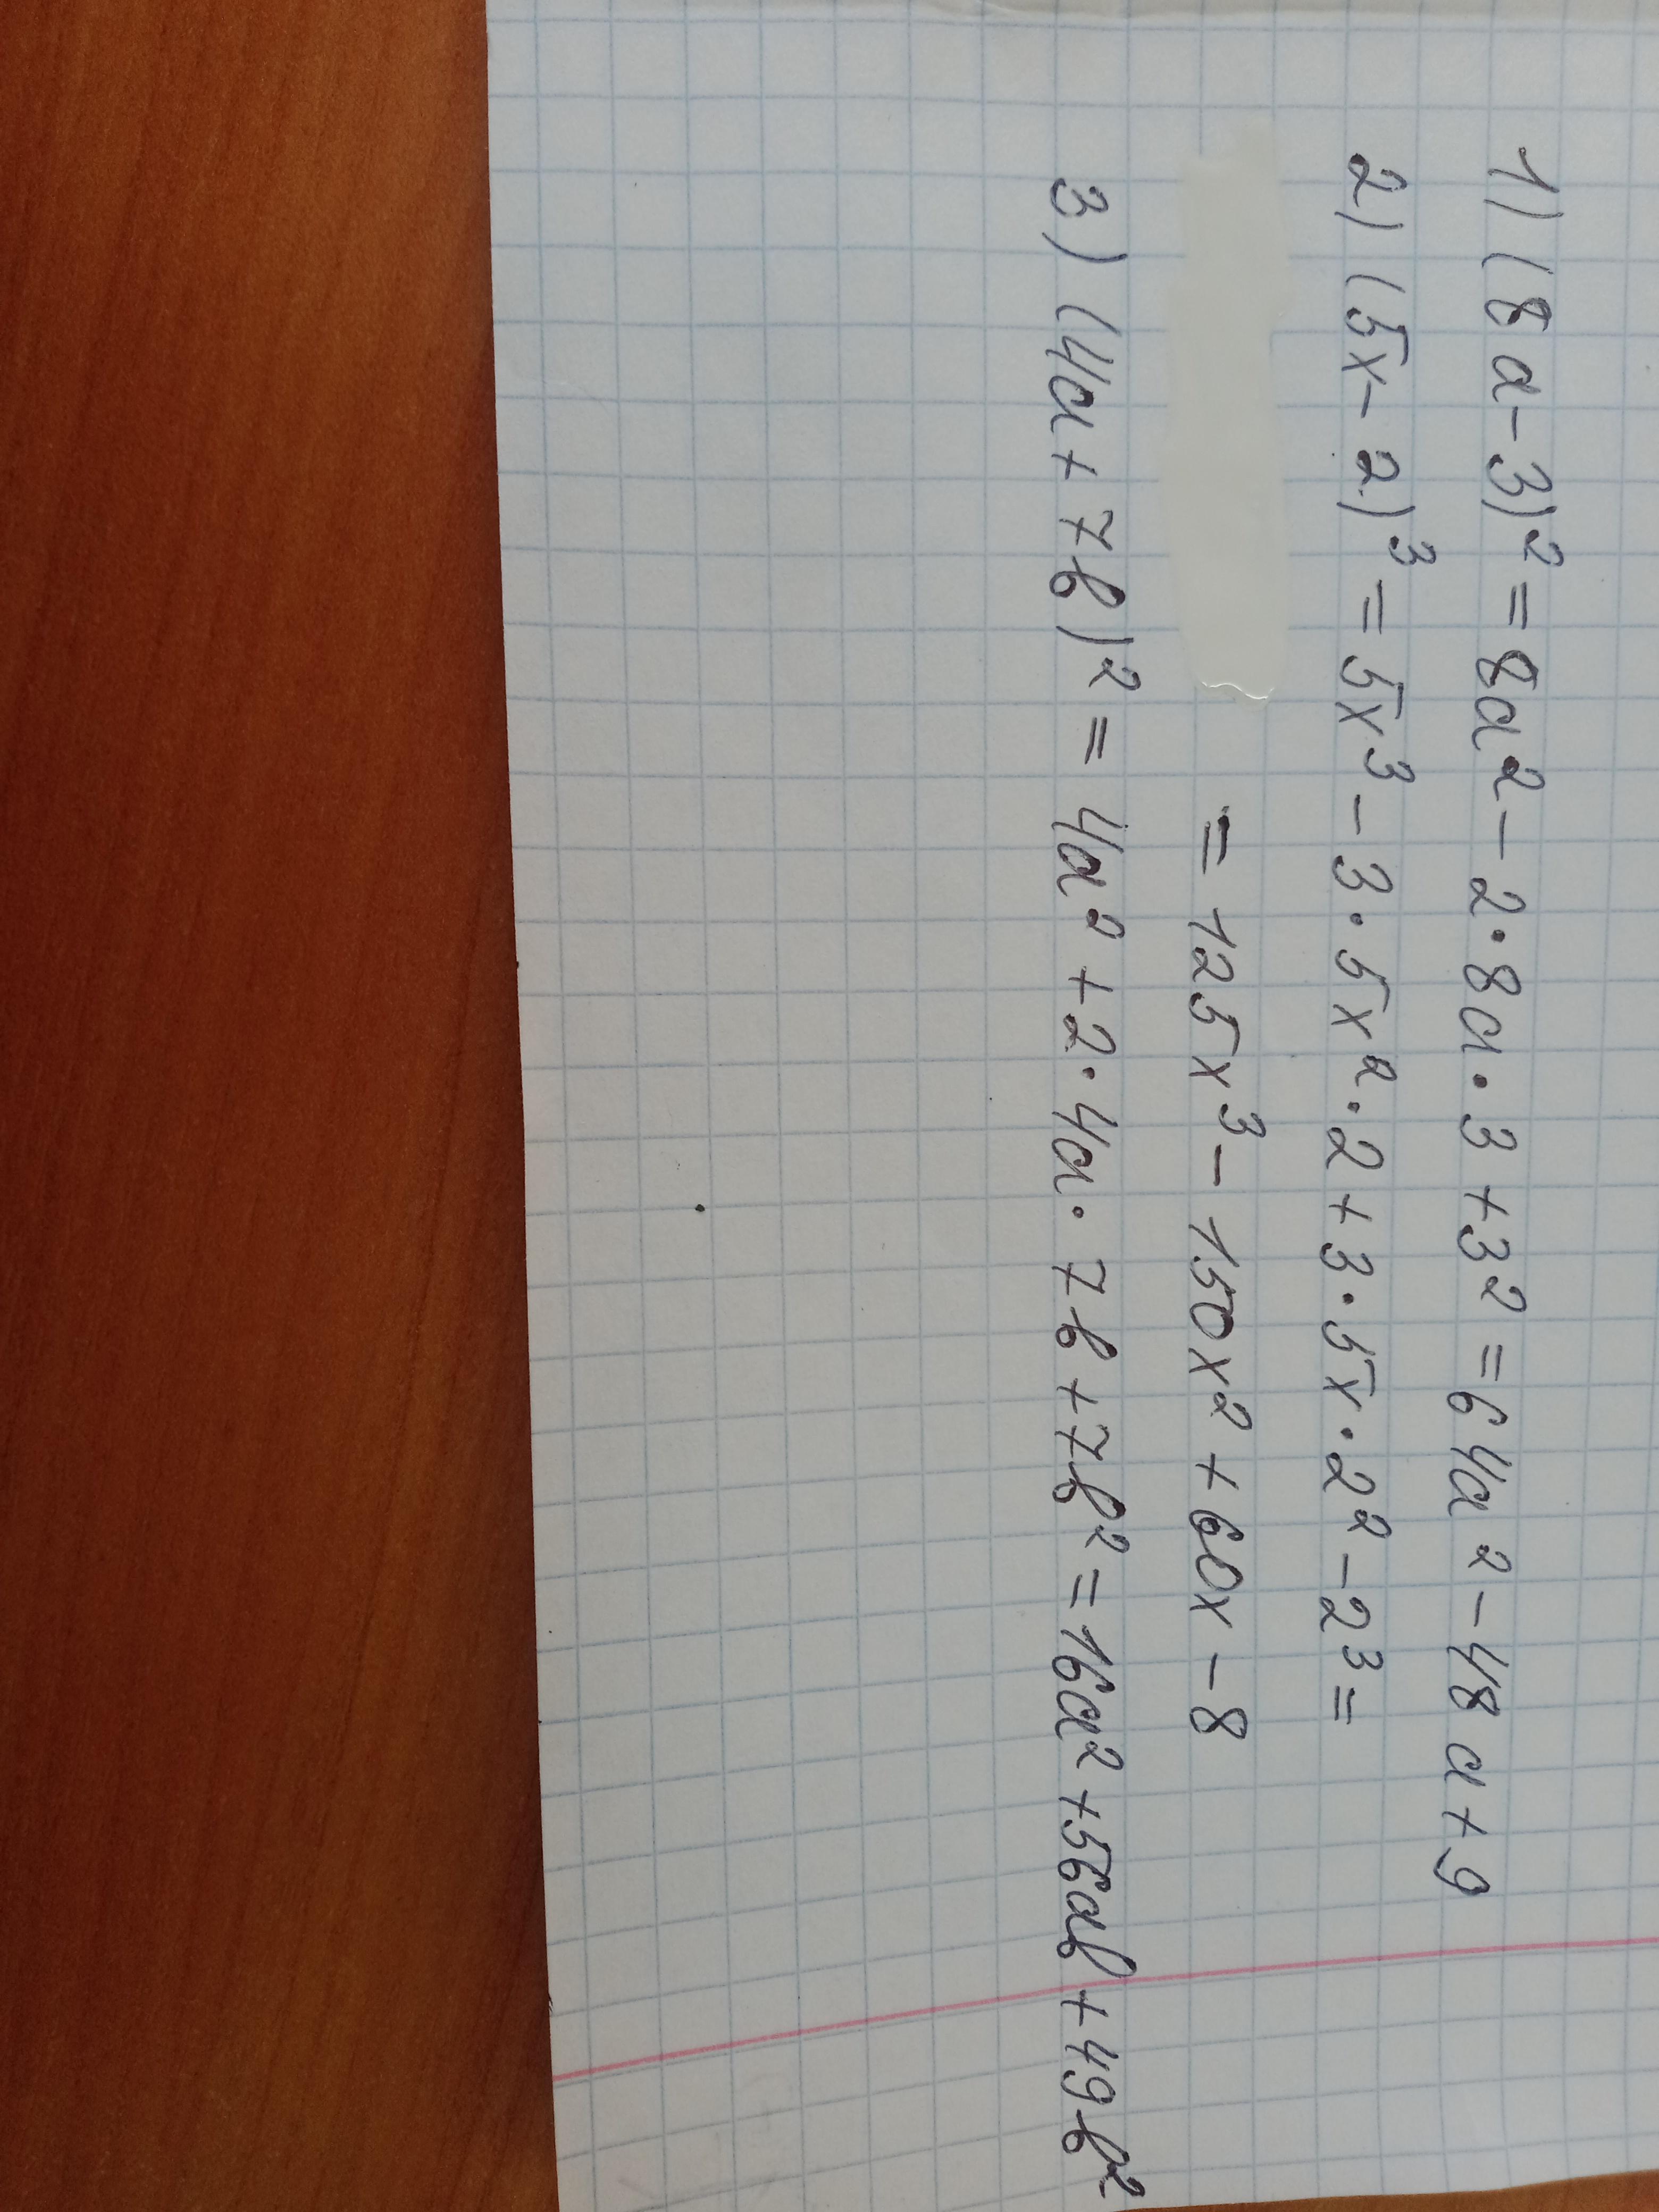 1) (8a-3)² = 8a² - 2·8a·3 + 3² = 64a² - 48a + 9
2) (5x-2)³ = 5x³ - 3·5x²·2 + 3·5x·2² - 2³ =
= 125x³ - 150x² + 60x - 8
3) (4a + 7b)² = 4a² + 2·4a·7b + 7b² = 16a² + 56ab + 49b²